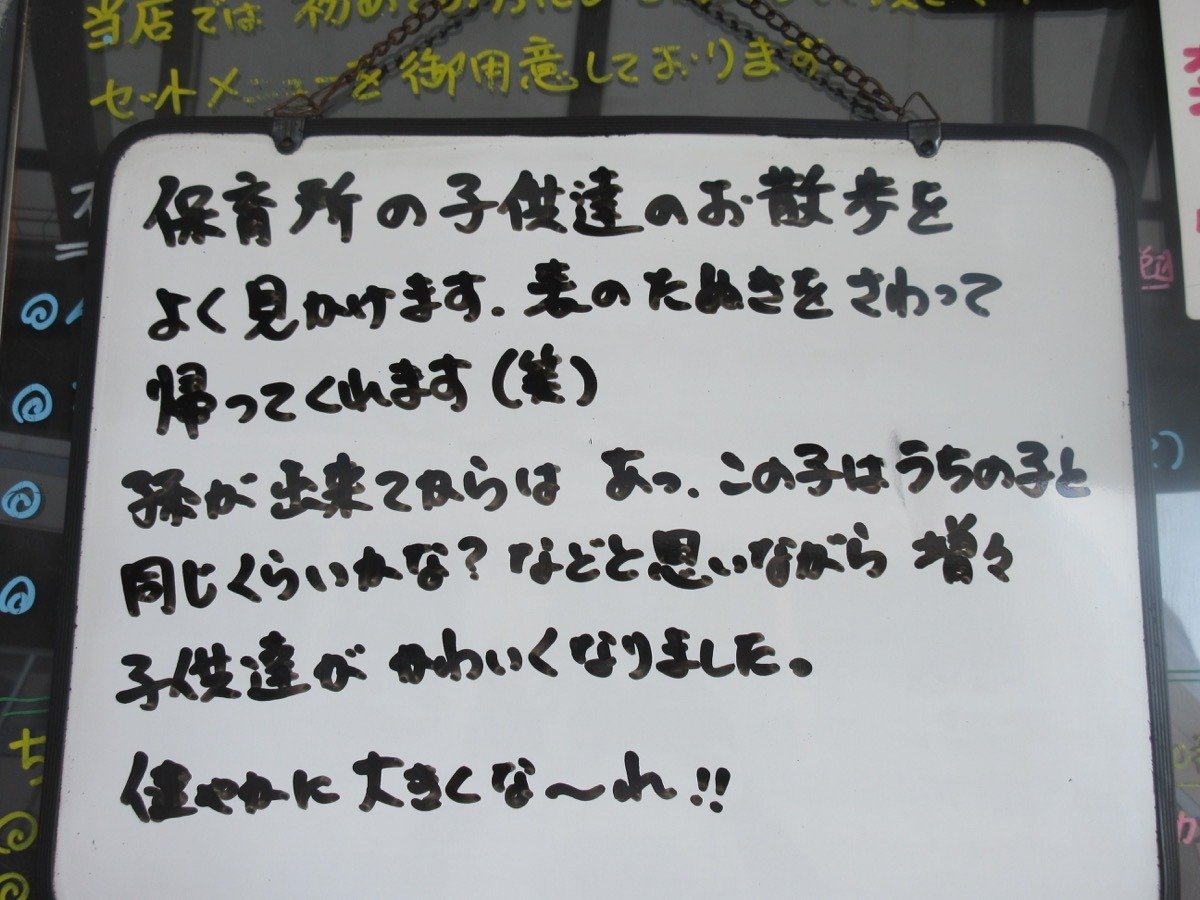 当店では 初めての方に
セットメニューを御用意しております。
保育所の子供達のお散歩を
よく見かけます。表のたぬきをさわって
帰ってくれます(笑)
孫が出来てからは あっ、この子はうちの子と
同じくらいかな?などと思いながら 増々
子供達が かわいくなりました。
健やかに大きくな〜れ!!